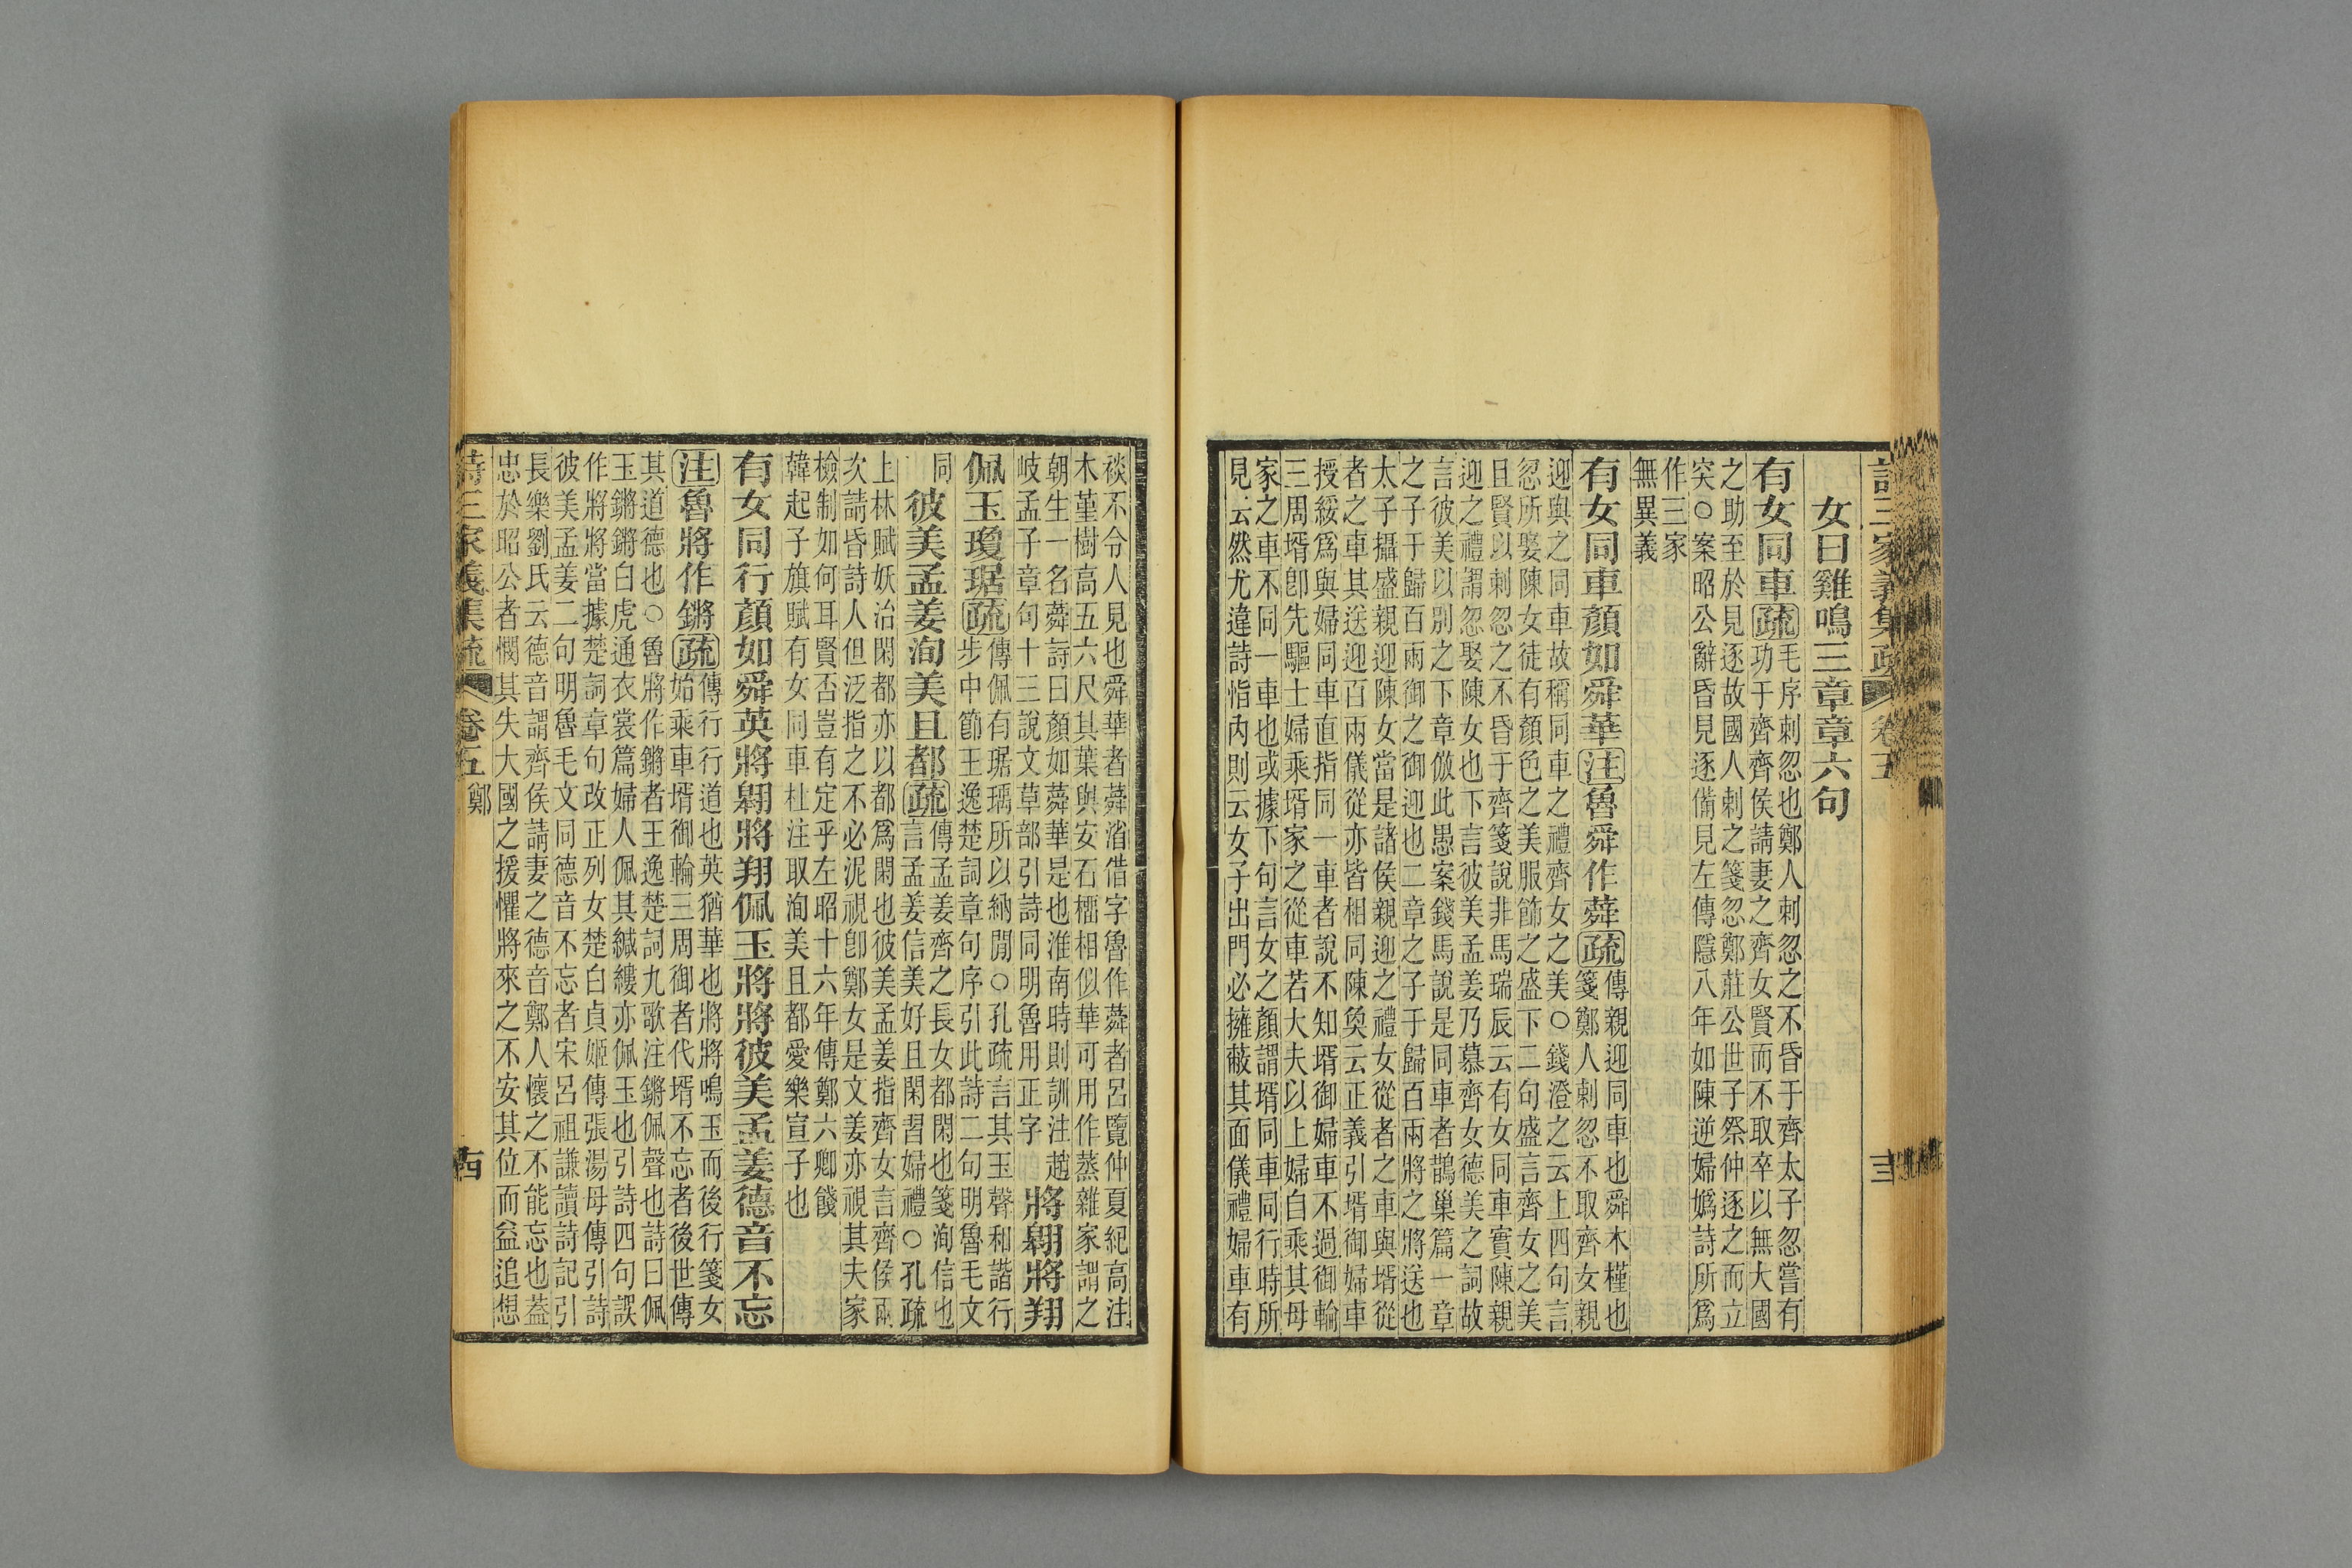 詩三家義集疏 卷五
女曰雞鳴三章章六句
有女同車疏毛序刺忽也鄭人刺忽之不昏于齊太子忽嘗有
功于齊齊侯請妻之齊女賢而不取卒以無大國
之助至於見逐故國人刺之箋忽鄭莊公世子祭仲逐之而立
突○案昭公辭昏見逐備見左傳隱八年如陳逆婦嬀詩所爲
作三家
無異義
有女同車顏如舜華注魯舜作蕣疏傳親迎同車也舜木槿也
箋鄭人刺忽不取齊女親
迎與之同車故稱同車之禮齊女之美○錢澄之云上四句言
忽所娶陳女徒有顏色之美服飾之盛下二句盛言齊女之美
且賢以刺忽之不昏于齊箋說非馬瑞辰云有女同車實陳親
迎之禮謂忽娶陳女也下言彼美孟姜乃慕齊女德美之詞故
言彼美以別之下章倣此愚案錢馬說是同車者鵲巢篇一章
之子于歸百兩御之御迎也二章之子于歸百兩將之將送也
太子攝盛親迎陳女當是諸侯親迎之禮女從者之車與壻從
者之車其送迎百兩儀從亦皆相同陳奐云正義引壻御婦車
授綏爲與婦同車直指同一車者說不知壻御婦車不過御輪
三周壻卽先驅士婦乘壻家之從車若大夫以上婦自乘其母
家之車不同一車也或據下句言女之顏謂壻同車同行時所
見云然尤違詩恉內則云女子出門必擁蔽其面儀禮婦車有
裧不令人見也舜華者蕣渻借字魯作蕣者呂覽仲夏紀高注
木堇樹高五六尺其葉與安石榴相似華可用作蒸雜家謂之
朝生一名蕣詩曰顏如蕣華是也淮南時則訓注趙
岐孟子章句十三說文草部引詩同明魯用正字
將翱將翔
佩玉瓊琚疏傳佩有琚瑀所以納閒○孔疏言其玉聲和諧行
步中節王逸楚詞章句序引此詩二句明魯毛文
同
彼美孟姜洵美且都疏傳孟姜齊之長女都閑也箋洵信也
言孟姜信美好且閑習婦禮○孔疏
上林賦妖冶閑都亦以都爲閑也彼美孟姜指齊女言齊侯兩
次請昏詩人但泛指之不必泥視卽鄭女是文姜亦視其夫家
檢制如何耳賢否豈有定乎左昭十六年傳鄭六卿餞
韓起子旗賦有女同車杜注取洵美且都愛樂宣子也
有女同行顏如舜英將翱將翔佩玉將將彼美孟姜德音不忘
注魯將作鏘疏傳行行道也英猶華也將將鳴玉而後行箋女
始乘車壻御輪三周御者代壻不忘者後世傳
其道德也○魯將作鏘者王逸楚詞九歌注鏘佩聲也詩曰佩
玉鏘鏘白虎通衣裳篇婦人佩其緘縷亦佩玉也引詩四句誤
作將將當據楚詞章句改正列女楚白貞姬傳張湯母傳引詩
彼美孟姜二句明魯毛文同德音不忘者宋呂祖謙讀詩記引
長樂劉氏云德音謂齊侯請妻之德音鄭人懷之不能忘也蓋
忠於昭公者憫其失大國之援懼將來之不安其位而益追想
詩三家義集疏 卷五 鄭